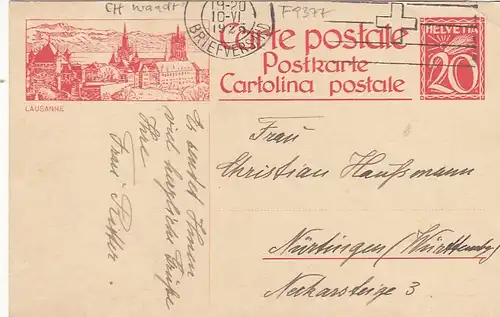 CH Waadt
F9377
19-20
10-VI
BRIEFVERSAND
Carte postale
Postkarte
Cartolina postale
HELVETIA
20
LAUSANNE
Frau
Christian Haußmann
Nürtingen (Württembg)
Neckarsteige 3
Es sendet Ihnen
viel herzliche Grüße
Ihre
Frau Pfister.